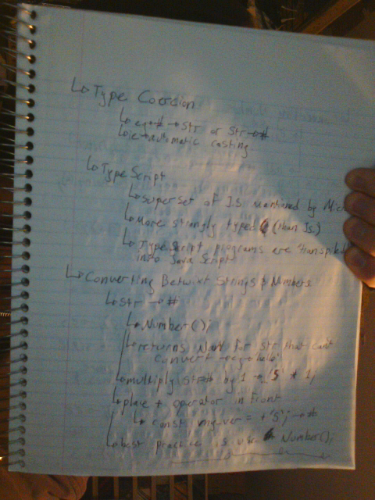 ↳ Type Coercion
↳ eg # → str or str → #
↳ ie automatic casting
↳ TypeScript
↳ superset of JS maintained by Mic
↳ More strongly typed (than Js.)
↳ TypeScript programs are transpiled
into JavaScript
↳ Converting Between Strings & Numbers
↳ str → #
↳ Number();
↳ returns NaN for str that can't
convert →
↳ multiply string by 1 → '5' * 1;
↳ place + operator in front
↳ const myver = +'5'; → #
↳ best practice is use Number();